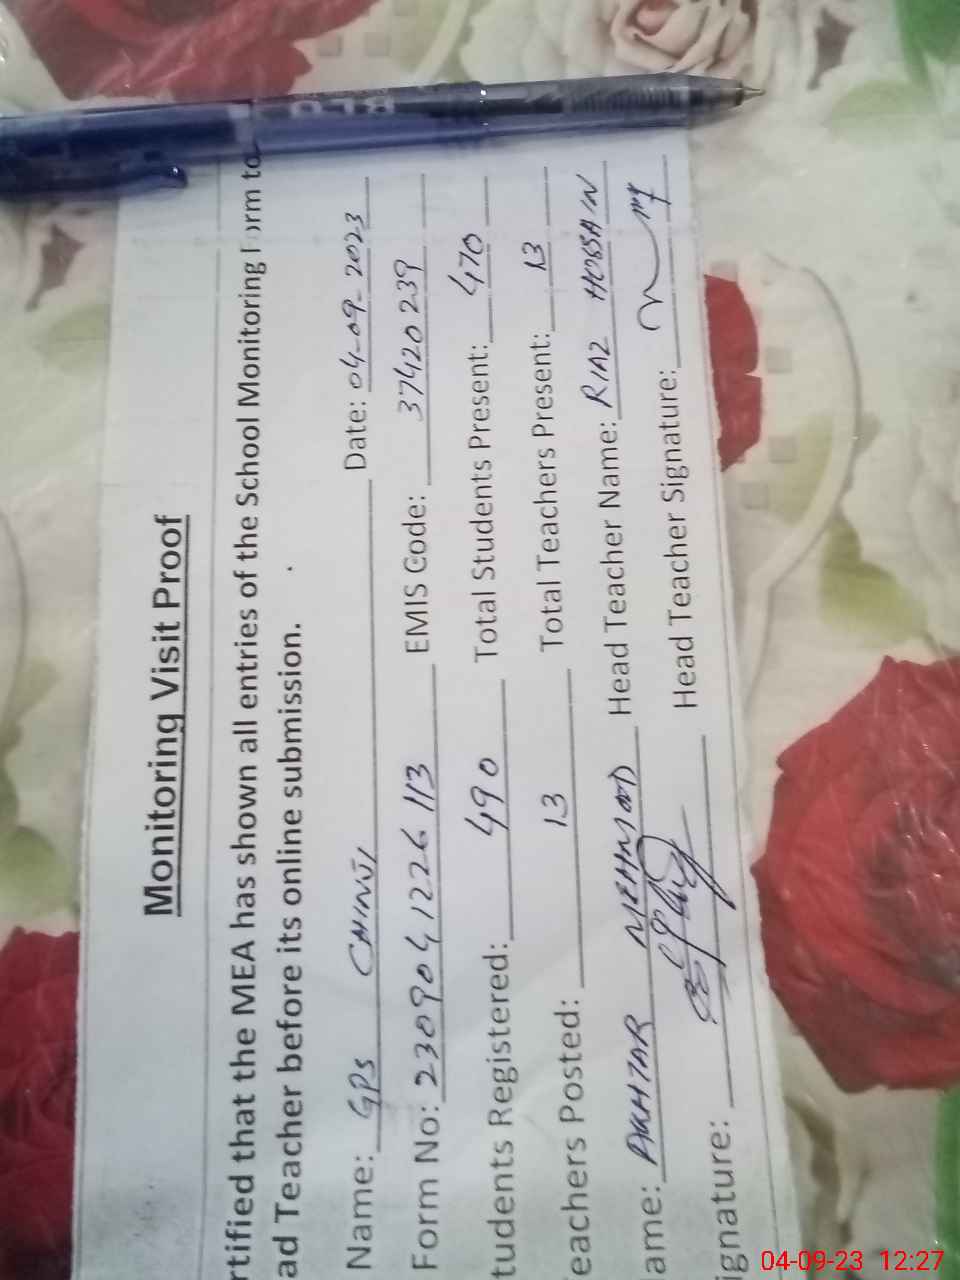 Monitoring Visit Proof
rtified that the MEA has shown all entries of the School Monitoring Form to
ad Teacher before its online submission.
Name: GPS CHINJI Date: 04-09-2023
Form No: 2309041226113 EMIS Code: 37420239
tudents Registered: 490 Total Students Present: 470
eachers Posted: 13 Total Teachers Present: 13
ame: AKHTAR MEHMOOD Head Teacher Name: RIAZ HOSSAIN
ignature: Head Teacher Signature:
04-09-23 12:27